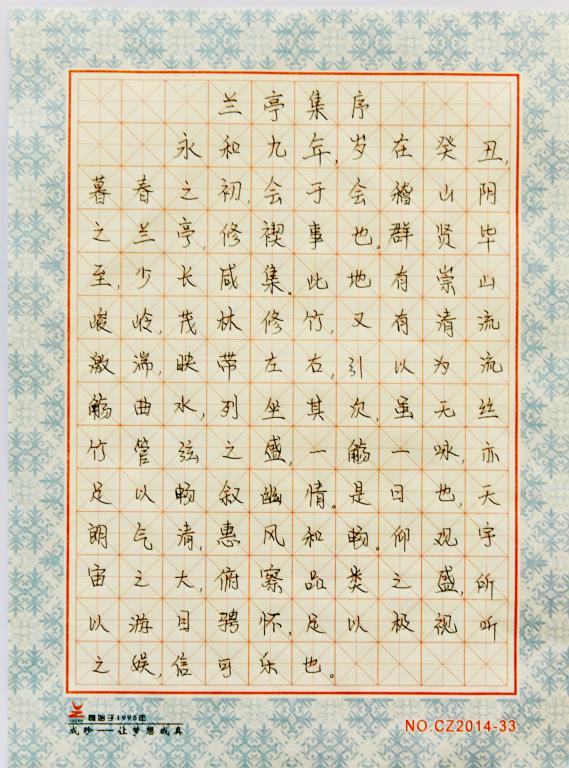 兰亭集序
永和九年,岁在癸丑,
暮春之初,会于会稽山阴
之兰亭,修禊事也。群贤毕
至,少长咸集。此地有崇山
峻岭,茂林修竹,又有清流
激湍,映带左右,引以为流
觞曲水,列坐其次,虽无丝
竹管弦之盛,一觞一咏,亦
足以畅叙幽情。是日也,天
朗气清,惠风和畅。仰观宇
宙之大,俯察品类之盛,所
以游目骋怀,足以极视听
之娱,信可乐也。
創始于1995年
成珍——让梦想成真
NO.CZ2014-33